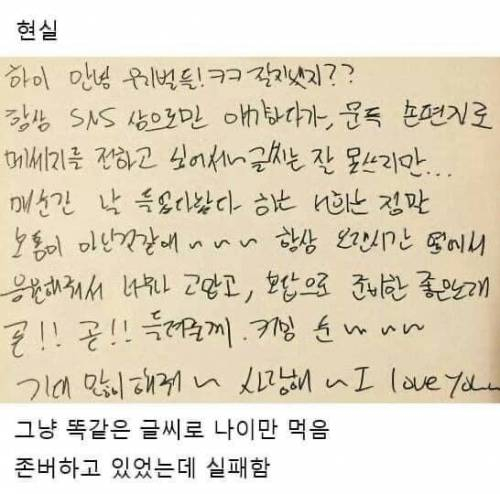 현실
하이 안녕 우리벌들! ㅋㅋ 잘지냈지??
항상 SNS 상으로만 얘기하다가, 문득 손편지로
메세지를 전하고 싶어서~ 글씨는 잘 못쓰지만...
매순간 날 하는 너희는 정말
보통이 아닌것같애 ~ ~ ~ 항상 오랜시간 옆에서
응원해줘서 너무나 고맙고, 보답으로 준비한 좋은노래
곧!! 곧!! 들려줄께. 커밍 순 ~ ~ ~
기대 많이해줘 ~ 사랑해 ~ I love You
그냥 똑같은 글씨로 나이만 먹음
존버하고 있었는데 실패함